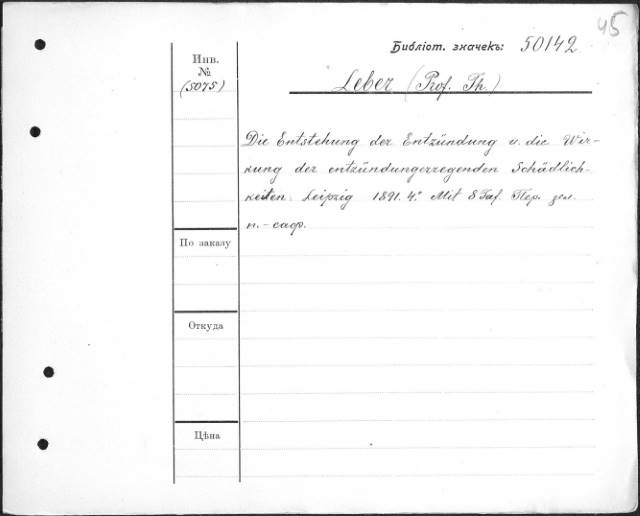 45
Библіот. значекъ: 50142
Инв.
№
(5075)
Leber (Prof. Th.)
Die Entstehung der Entzündung u. die Wir-
kung der entzündungerregenden Schädlich-
keiten. Leipzig 1891. 4.° Mit 8 Taf. Пер. зел.
п.-саф.
По заказу
Откуда
Цѣна